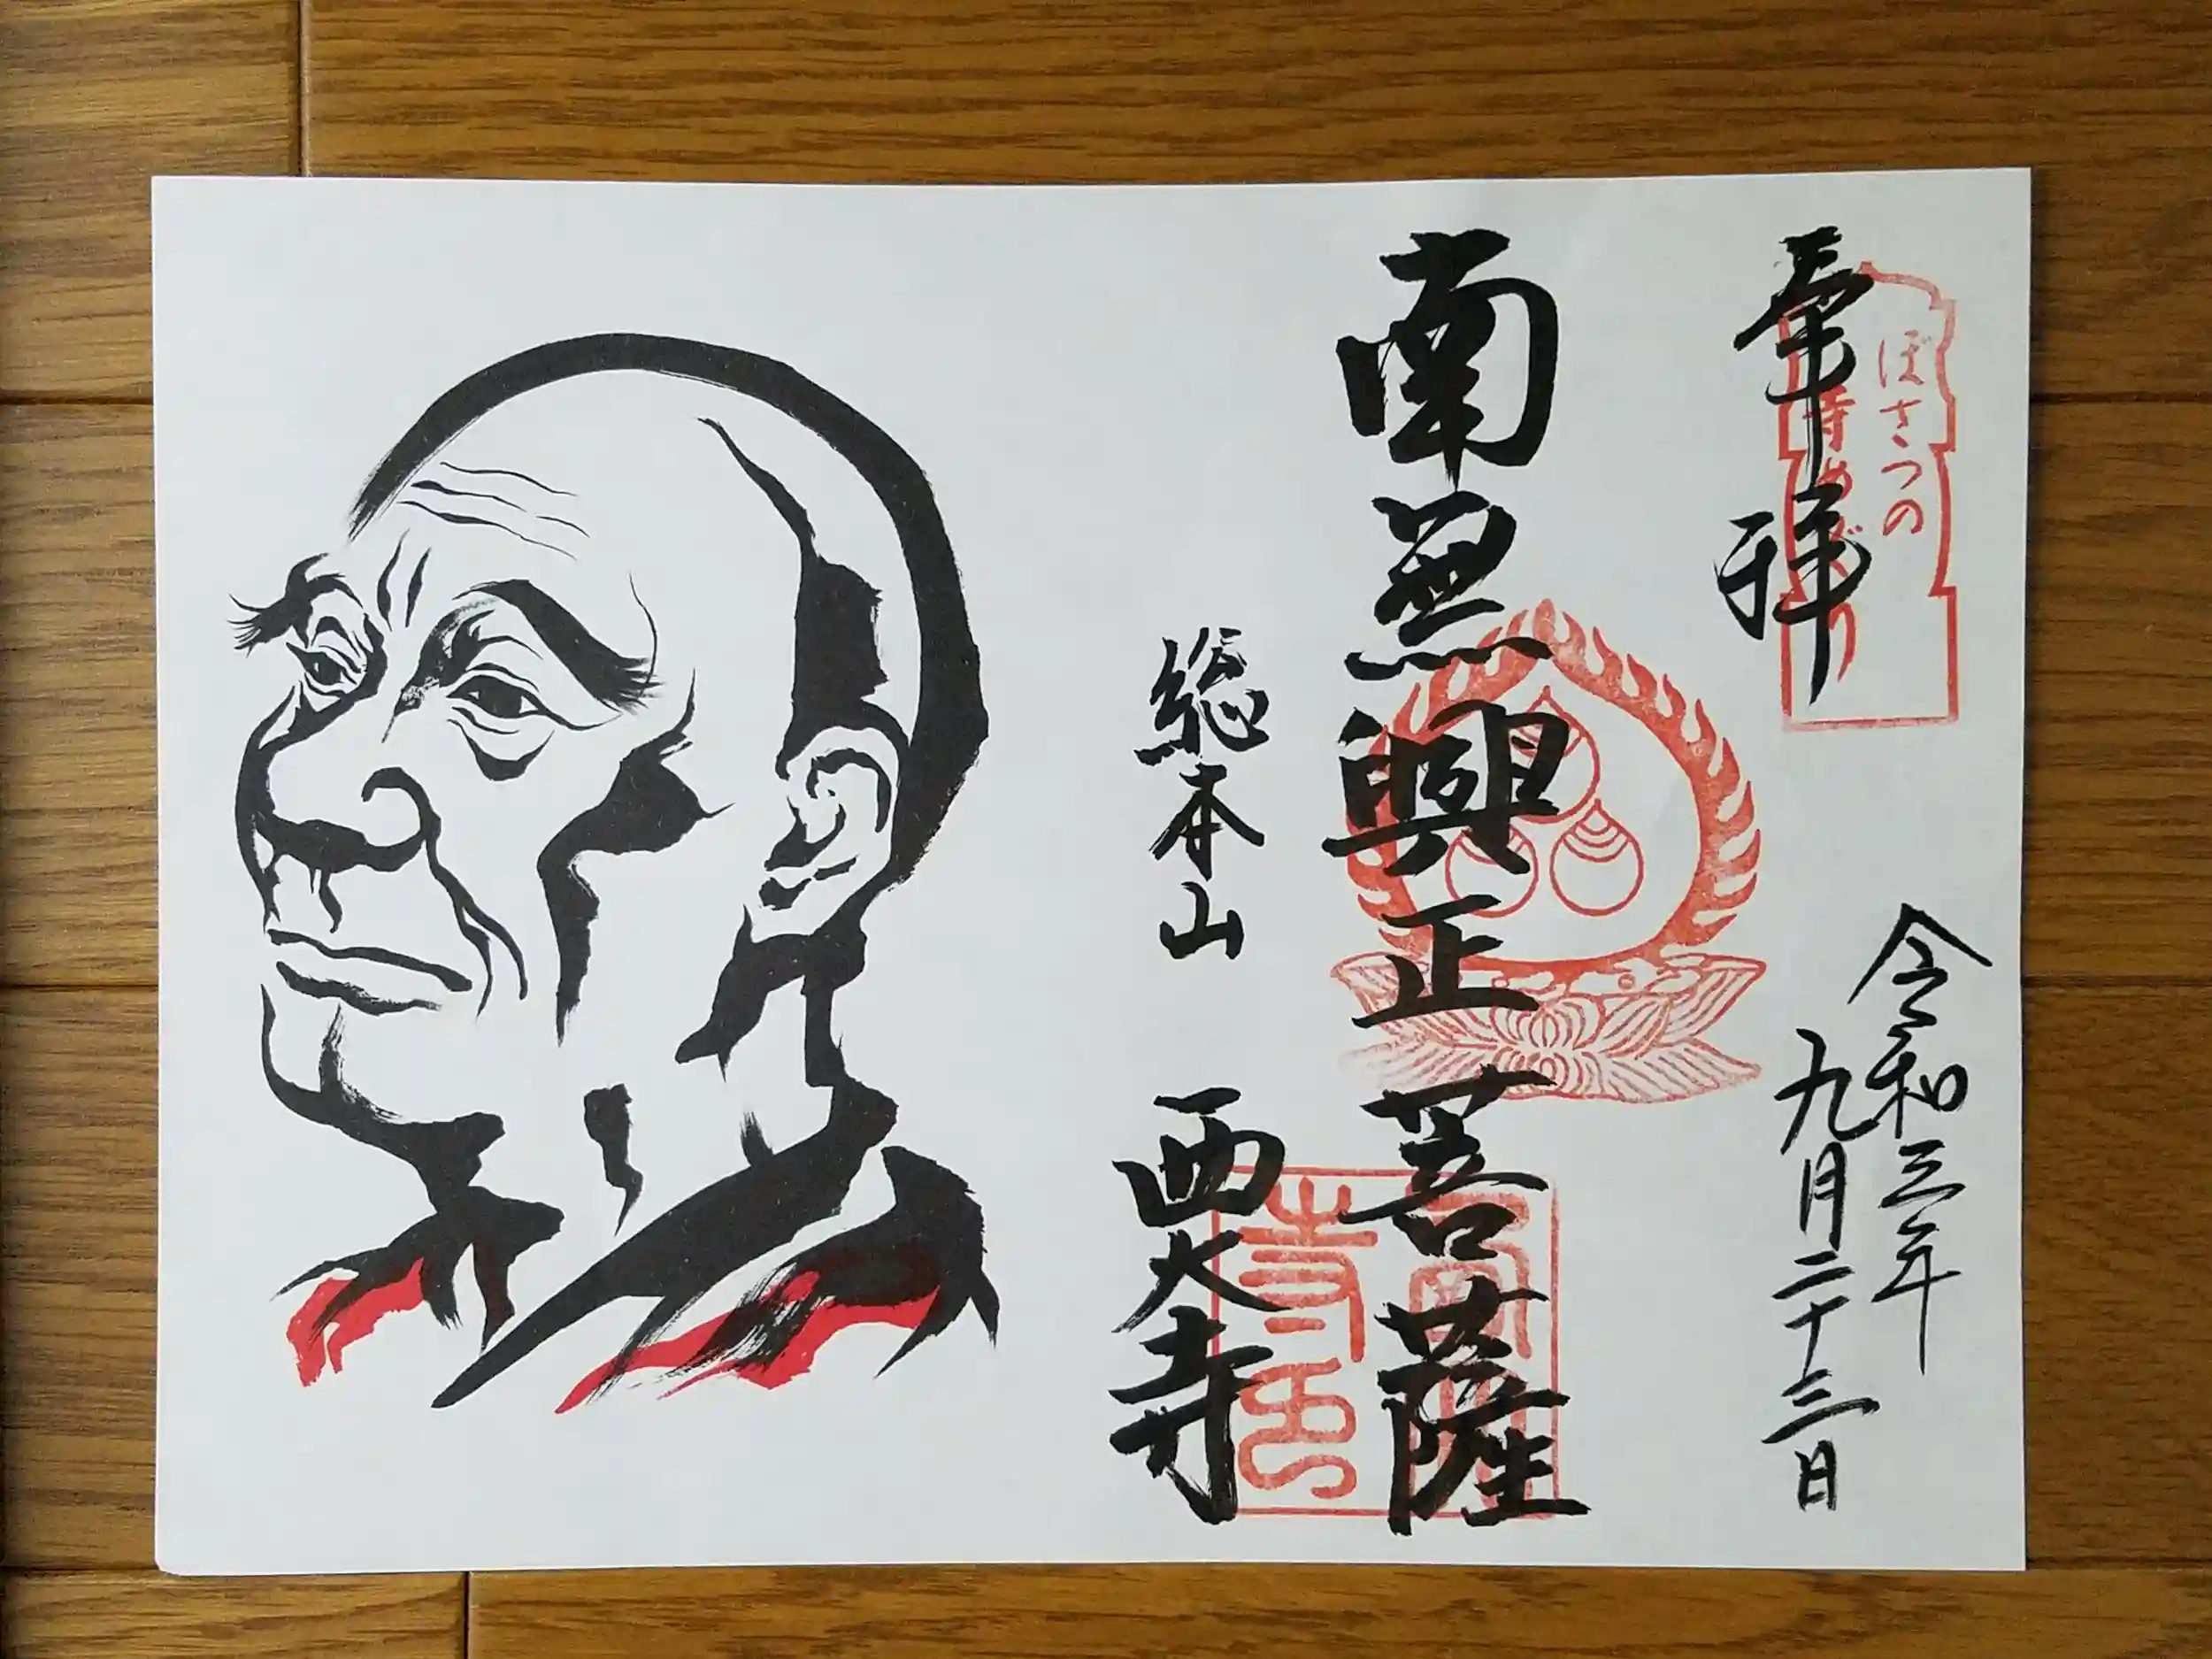 ぼさつの
寺めぐり
奉拝
令和三年
九月二十三日
南無興正菩薩
総本山
西大寺